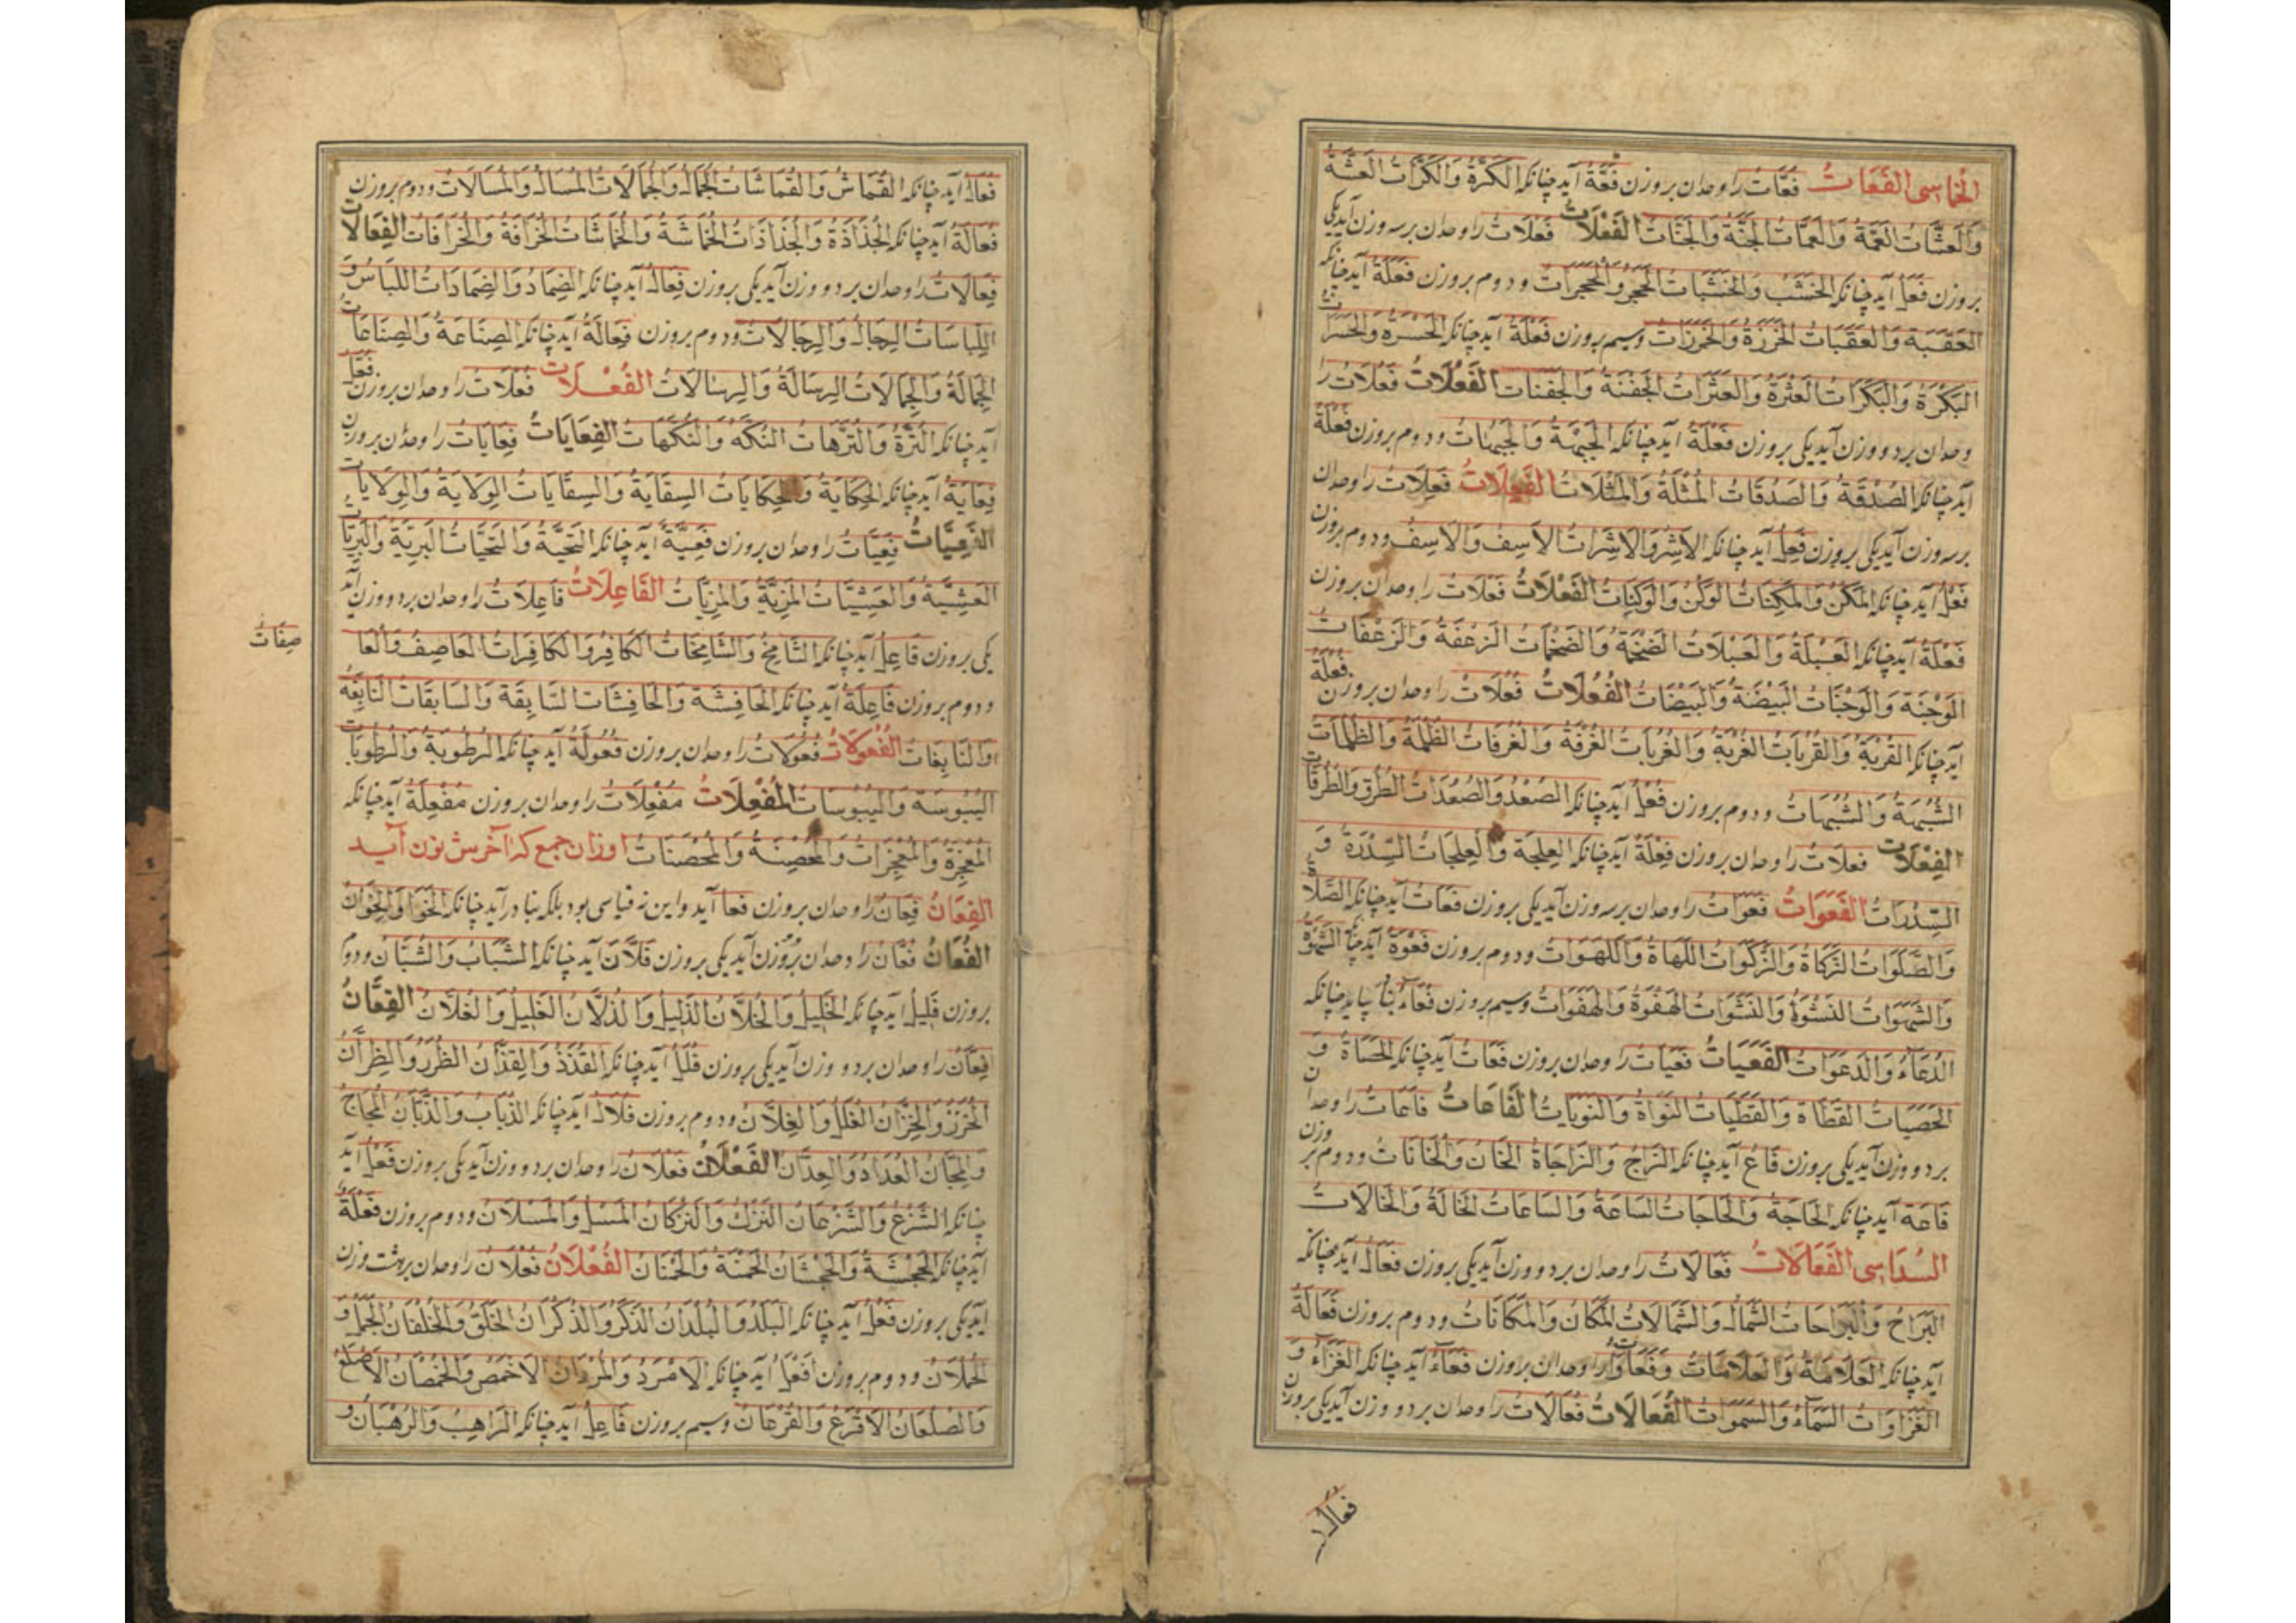 الخماسی الفَعَّات فَعَّات را وحدان بروزن فَعَّة آید چنانکه الکَرَّةُ وَالکَرَّاتُ العَشَّةُ
وَالعَشَّاتُ العَمَّةُ وَالعَمَّاتُ الجَنَّةُ وَالجَنَّاتُ الفَعَلَات فَعَلَات را وحدان برسه وزن آید یکی
بروزن فَعَلٌ آید چنانکه الخَشَبُ وَالخَشَبَاتُ الحَجَرُ وَالحَجَرَاتُ ودوم بروزن فَعَلَةٌ آید چنانکه
العَقَبَة وَالعَقَبَاتُ الخَرَزَةُ وَالخَرَزَاتُ وسیم بروزن فَعْلَةٌ آید چنانکه الحَسْرَةُ وَالحَسَرَاتُ
البَکْرَةُ وَالبَکَرَاتُ العَثْرَةُ وَالعَثَرَاتُ الجَفْنَةُ وَالجَفَنَاتُ الفَعُلَاتُ فَعُلَات را
وحدان بردو وزن آید یکی بروزن فَعْلَةٌ آید چنانکه الجَبْهَةُ وَالجَبَهَاتُ ودوم بروزن فَعُلَةٌ
آید چنانکه الصَدُقَةُ وَالصَدُقَاتُ المَثُلَةُ وَالمَثُلَاتُ الفَعِلَاتُ فَعِلَات را وحدان
برسه وزن آید یکی بروزن فَعِلٌ آید چنانکه الاَشِرُ وَالاَشِرَاتُ الاَسِفُ وَالاَسِفُ ودوم بروزن
فَعْلٌ آید چنانکه المَکْنُ وَالمَکِنَاتُ الوَکْنُ وَالوَکِنَاتُ الفَعْلَاتُ فَعْلَات را وحدان بروزن
فَعْلَةٌ آید چنانکه العَبْلَةُ وَالعَبْلَاتُ الضَخْمَةُ وَالضَخْمَاتُ الزَعْفَةُ وَالزَعْفَاتُ
الوَجْنَة وَالوَجْنَاتُ البَیْضَةُ وَالبَیْضَاتُ الفُعُلَاتُ فُعُلَات را وحدان بروزن فُعْلَةٌ
آید چنانکه القُرْبَة وَالقُرُبَاتُ الغُرْبَةُ وَالغُرُبَاتُ الغُرْفَةُ وَالغُرُفَاتُ الظُلْمَةُ وَالظُلُمَاتُ
الشُبْهَةُ وَالشُبُهَاتُ ودوم بروزن فُعُلٌ آید چنانکه الصُعُدُ وَالصُعُدَاتُ الطُرُقُ وَالطُرُقَاتُ
الفِعْلَات فعلات را وحدان بروزن فِعْلَةٌ آید چنانکه العِلْجَة وَالعِلْجَاتُ السِّدْرَةُ وَ
السِّدْرَاتُ الفَعَوَاتُ فَعَوَات را وحدان برسه وزن آید یکی بروزن فَعَات آید چنانکه الصَّلَاةُ
وَالصَّلَوَاتُ الزَکَاةُ وَالزَکَوَاتُ اللَهَاةُ وَاللَهَوَاتُ ودوم بروزن فَعْوَةٌ آید چنا الشَهْوَةُ
وَالشَهَوَاتُ النَشْوَةُ وَالنَشَوَاتُ الهَفْوَةُ وَالهَفَوَاتُ وسیم بروزن فُعَاءٌ آید چنانکه
الدُعَاءُ وَالدَعَوَاتُ الفَعَیَاتُ فَعَیَات را وحدان بروزن فَعَات آید چنانکه الحَصَاةُ وَ
الحَصَیَاتُ القَطَاة وَالقَطَیَاتُ النَوَاةُ وَالنَوَیَاتُ الفَاعَاتُ فَاعَات را وحدان
بردو وزن آید یکی بروزن فَاع آید چنانکه الزَاجُ وَالزَاجَاةُ الخَانُ وَالخَانَاتُ ودوم بر وزن
فَاعَة آید چنانکه الحَاجَةُ وَالحَاجَاتُ السَاعَةُ وَالسَاعَاتُ الخَالَةُ وَالخَالَاتُ
السُدَاسِی الفَعَالَاتُ فَعَالَات را وحدان بردو وزن آید یکی بروزن فَعَالٌ آید چنانکه
البَرَاحُ وَالبَرَاحَاتُ الشَمَالُ وَالشَمَالَاتُ المَکَانُ وَالمَکَانَاتُ ودوم بروزن فَعَالَةٌ
آید چنانکه العَلَامَةُ وَالعَلَامَاتُ وَفَعَاوَات را وحدان بروزن فَعَاءٌ آید چنانکه الغَزَاءُ وَ
الغَزَاوَاتُ السَمَاءُ وَالسَمَوَاتُ الفُعَالَاتُ فُعَالَات را وحدان بردو وزن آید یکی بروزن
فعال
فُعَالٌ آید چنانکه القُمَاشُ وَالقُمَاشَاتُ الجُمَالُ وَالجُمَالَاتُ المُسَالُ وَالمُسَالَاتُ ودوم بروزن
فُعَالَةٌ آید چنانکه الجُذَاذَةُ وَالجُذَاذَاتُ الخُمَاشَةُ وَالخُمَاشَاتُ الخُرَافَةُ وَالخُرَافَاتُ الفِعَالَات
فِعَالَات را وحدان بردو وزن آید یکی بروزن فِعَالٌ آید چنانکه الضِمَادُ وَالضِمَادَاتُ اللِبَاسُ وَ
اللِبَاسَاتُ الرِجَالُ وَالرِجَالَاتُ ودوم بروزن فِعَالَةٌ آید چنانکه الصِنَاعَةُ وَالصِنَاعَاتُ
الجِمَالَةُ وَالجِمَالَاتُ الرِسَالَةُ وَالرِسَالَاتُ الفُعَّلَات فُعَّلَات را وحدان بروزن فُعَّل
آید چنانکه التُرَّهُ وَالتُرَّهَاتُ النُکَّهُ وَالنُکَّهَاتُ الفِعَایَاتُ فِعَایَات را وحدان بروزن
فِعَایَةٌ آید چنانکه الحِکَایَةُ وَالحِکَایَاتُ السِقَایَةُ وَالسِقَایَاتُ الوِلَایَةُ وَالوِلَایَاتُ
الفَعِیَّاتُ فَعِیَّات را وحدان بروزن فَعِیَّةٌ آید چنانکه التَحِیَّةُ وَالتَحِیَّاتُ البَرِیَّةُ وَالبَرِیَّاتُ
العَشِیَّةُ وَالعَشِیَّاتُ المَزِیَّةُ وَالمَزِیَّاتُ الفَاعِلَاتُ فَاعِلَات را وحدان بردو وزن آید
یکی بروزن فَاعِلٌ آید چنانکه الشَامِخُ وَالشَامِخَاتُ الکَافِرُ وَالکَافِرَاتُ العَاصِفُ وَالعَا
صِفَاتُ
ودوم بروزن فَاعِلَةٌ آید چنانکه الحَافِشَة وَالحَافِشَاتُ السَابِقَة وَالسَابِقَاتُ النَابِغَةُ
وَالنَابِغَاتُ الفُعُولَاتُ فُعُولَات را وحدان بروزن فُعُولَةٌ آید چنانکه الرُطُوبَةُ وَالرُطُوبَاتُ
الیُبُوسَةُ وَالیُبُوسَاتُ المُفْعِلَاتُ مُفْعِلَات را وحدان بروزن مُفْعِلَةٌ آید چنانکه
المُعْجِزَةُ وَالمُعْجِزَاتُ وَالمُحْصِنَةُ وَالمُحْصَنَاتُ اوزان جمع که آخرش نون آید
الفِعَانُ فِعَان را وحدان بروزن فعا آید واین نه قیاسی بود بلکه بنا در آید چنانکه الخَوَا وَالخِوَانُ
الفُعَّانُ فُعَّان را وحدان بردو وزن آید یکی بروزن فَلَانَ آید چنانکه الشَبَابُ وَالشُبَّانُ ودوم
بروزن فَلِیلٌ آید چنانکه الخَلِیلُ وَالخُلَّانُ الذَلِیلُ وَالذُلَّانُ الغَلِیلُ وَالغُلَّانُ الفِعَّانُ
فِعَّان را وحدان بردو وزن آید یکی بروزن فُلَلٌ آید چنانکه القُذَذُ وَالقِذَّانُ الظُرَرُ وَالظِرَّانُ
الخُزَزُ وَالخِزَّانُ الغَلَلُ وَالغِلَّانُ ودوم بروزن فُلَالٌ آید چنانکه الذُبَابُ وَالذِبَّانُ المُجَاجُ
وَالمِجَّانُ العُدَادُ وَالعِدَّانُ الفَعْلَانُ فَعْلَان را وحدان بردو وزن آید یکی بروزن فَعْلٌ آید
چنانکه الشَزْعُ وَالشَزْعَانُ النَزْكُ وَالنَزْکَانُ المَسْلُ وَالمَسْلَانُ ودوم بروزن فَعْلَةٌ
آید چنانکه الحَجْشَةُ وَالحَجْشَانُ الحَمْنَةُ وَالحَمْنَانُ الفُعْلَانُ فُعْلَان را وحدان برهشت وزن
آید یکی بروزن فَعَلٌ آید چنانکه البَلَدُ وَالبُلْدَانُ الذَکَرُ وَالذُکْرَانُ الخَلَقُ وَالخُلْقَانُ الحَمَلُ وَ
الحُمْلَانُ ودوم بروزن اَفْعَلٌ آید چنانکه الاَمْرَدُ وَالمُرْدَانُ الاَخْمَصُ وَالخُمْصَانُ الاَصْلَعُ
وَالصُلْعَانُ الاَقْرَعُ وَالقُرْعَانُ وسیم بروزن فَاعِلٌ آید چنانکه الرَاهِبُ وَالرُهْبَانُ وَ